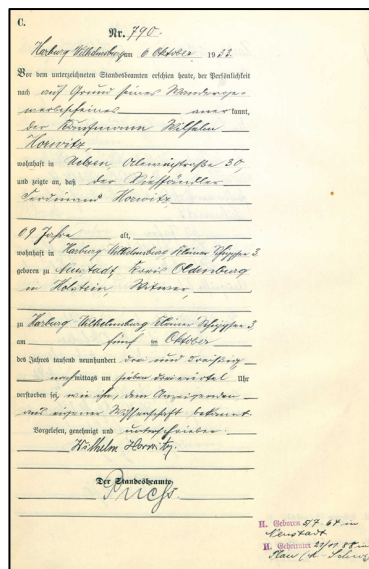 C.
Nr. 790.
Harburg Wilhelmsburg am 6 Oktober 1933.
Vor dem unterzeichneten Standesbeamten erschien heute, der Persönlichkeit
nach auf Grund seines Wanderge-
werbescheines anerkannt,
der Kaufmann Wilhelm
Horwitz,
wohnhaft in Uelzen, 30,
und zeigte an, daß der Viehhändler
Ferdinand Horwitz
69 Jahre alt,
wohnhaft in Harburg Wilhelmsburg kleiner Schippsee 3
geboren zu Neustadt, Kreis Oldenburg
in Holstein, Witwer,
zu Harburg Wilhelmsburg kleiner Schippsee 3
am fünf ten Oktober
des Jahres tausend neunhundert drei und dreißig
nachmittags um sieben dreiviertel Uhr
verstorben sei, wie ihm, dem Anzeigenden
aus eigener Wissenschaft bekannt.
Vorgelesen, genehmigt und unterschrieben
Wilhelm Horwitz.
Der Standesbeamte
II. Geboren 5/7 64 in
Neustadt
II. Geheiratet 88 in